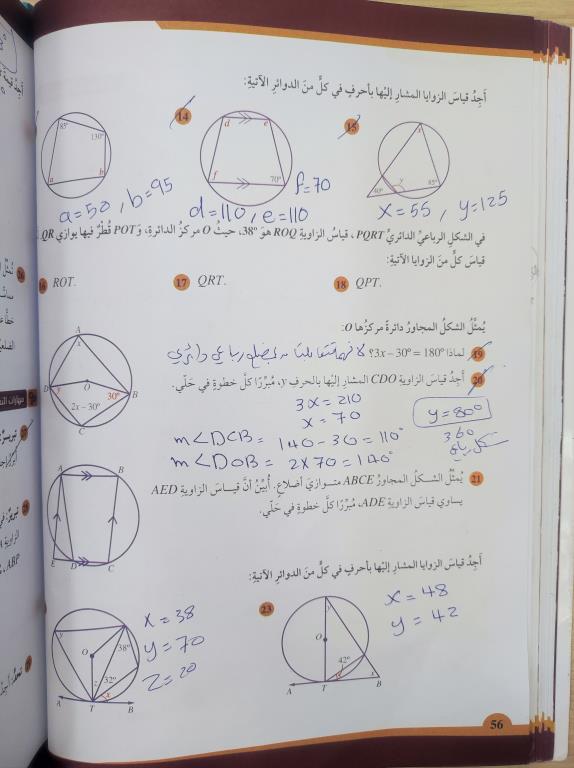 أجدُ قياسَ الزوايا المشارِ إليْها بأحرفٍ في كلٍّ منَ الدوائرِ الآتيةِ:
85°
130°
a
b
a=50 , b=95
14
d
e
f
70°
f=70
d=110 , e=110
15
x
y
40°
85°
x=55 , y=125
في الشكلِ الرباعيِّ الدائريِّ PQRT، قياسُ الزاويةِ ROQ هوَ 38°، حيثُ O مركزُ الدائرةِ، وَ POT قُطْرٌ فيها يوازي QR.
قياسَ كلٍّ منَ الزوايا الآتيةِ:
ROT.
17 QRT.
18 QPT.
يُمثِّلُ الشكلُ المجاورُ دائرةً مركزُها O:
19 لماذا 3x – 30° = 180°؟
20 أجدُ قياسَ الزاويةِ CDO المشارِ إليْها بالحرفِ y، مُبرِّرًا كلَّ خطوةٍ في حلّي.
A
x
D
y
O
30°
B
2x – 30°
C
3x = 210
x = 70
y = 80°
360
m∠DCB = 140 - 30 = 110°
m∠DOB = 2 x 70 = 140°
21 يُمثِّلُ الشكلُ المجاورُ ABCE متوازيَ أضلاعٍ. أُبيِّنُ أنَّ قياسَ الزاويةِ AED
يساوي قياسَ الزاويةِ ADE، مُبرِّرًا كلَّ خطوةٍ في حلّي.
A
B
E
D
C
أجدُ قياسَ الزوايا المشارِ إليْها بأحرفٍ في كلٍّ منَ الدوائرِ الآتيةِ:
y
O
38°
z
32°
x
A
T
B
x = 38
y = 70
z = 20
23
y
O
42°
x
A
T
B
x = 48
y = 42
56